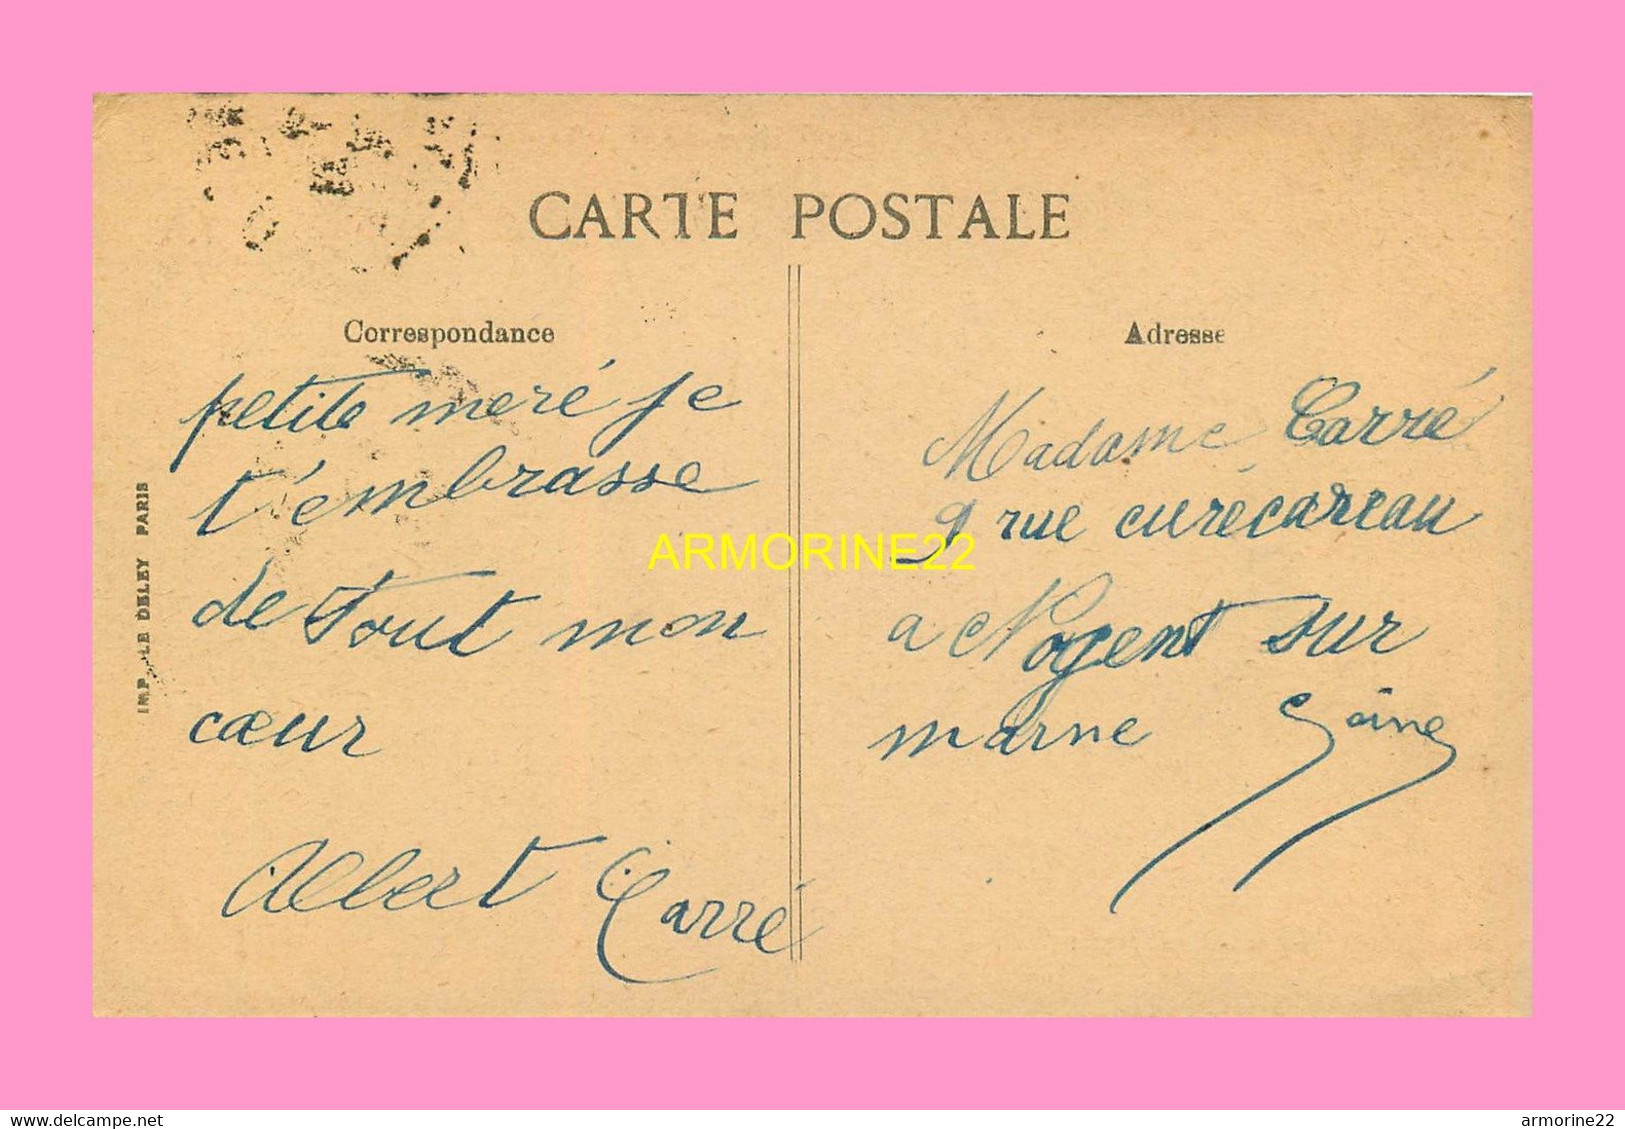 CARTE POSTALE
Correspondance
petite meré je
t'embrasse
de tout mon
cœur
Albert Carré
Adresse
Madame Carré
9 rue curécareau
a Nogent sur
marne Seine
IMP. LE DELEY PARIS
ARMORINE22
delcampe.net
armorine22